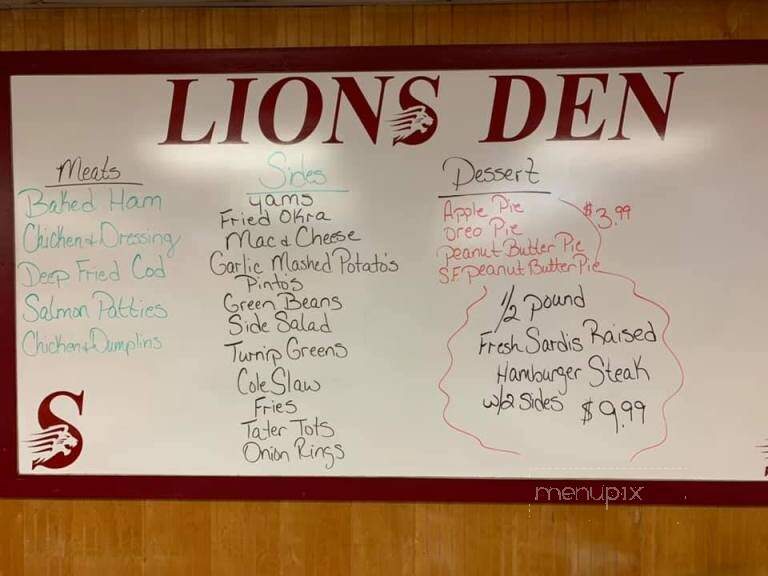 LIONS DEN
Meats
Baked Ham
Chicken & Dressing
Deep Fried Cod
Salmon Patties
Chicken & Dumplins
S
Sides
yams
Fried Okra
Mac & Cheese
Garlic Mashed Potato's
Pinto's
Green Beans
Side Salad
Turnip Greens
Cole Slaw
Fries
Tater Tots
Onion Rings
Dessert
Apple Pie
Oreo Pie
Peanut Butter Pie
S.F. Peanut Butter Pie
$3.99
1/2 pound
Fresh Sardis Raised
Hamburger Steak
w/2 sides $9.99
menupix